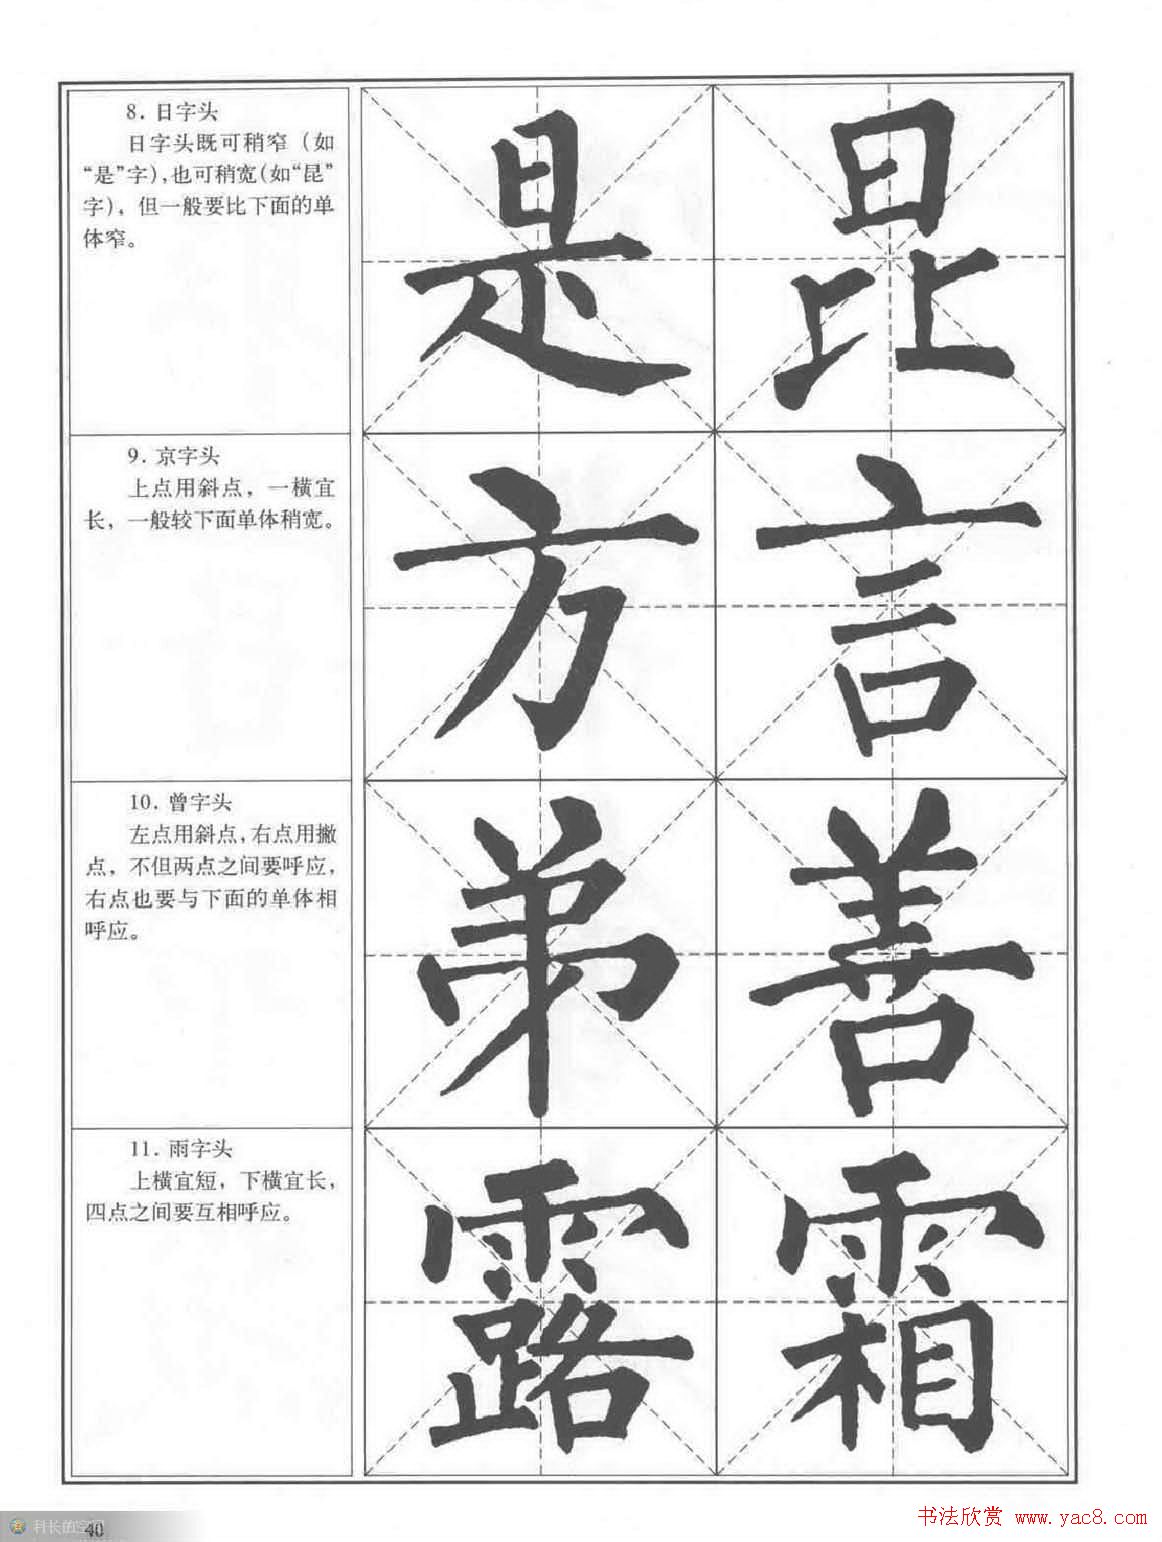 8. 日字头
日字头既可稍窄（如
“是”字），也可稍宽（如“昆”
字），但一般要比下面的单
体窄。
是 昆
9. 京字头
上点用斜点，一横宜
长，一般较下面单体稍宽。
方 言
10. 曾字头
左点用斜点，右点用撇
点，不但两点之间要呼应，
右点也要与下面的单体相
呼应。
弟 善
11. 雨字头
上横宜短，下横宜长，
四点之间要互相呼应。
露 霜
科长的空间
40
书法欣赏 www.yac8.com